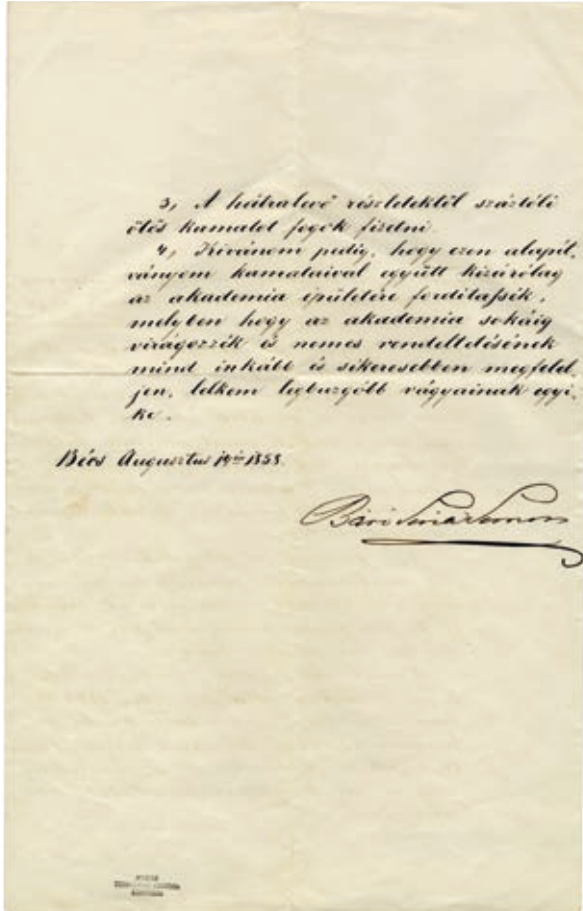 3, A hátralevő részletektől száztóli
ötös kamatot fogok fizetni.
4, Kívánom pedig, hogy ezen alapít,
ványom kamataival együtt kizárólag
az akademia épületére fordítassék,
melyben hogy az akademia sokáig
virágozzék és nemes rendeltetésének
mind inkább és sikeresebben megfelel,
jen, lelkem legbuzgóbb vágyainak egyi,
ke.
Bécs Augusztus 1858.
Báró Sina Simon